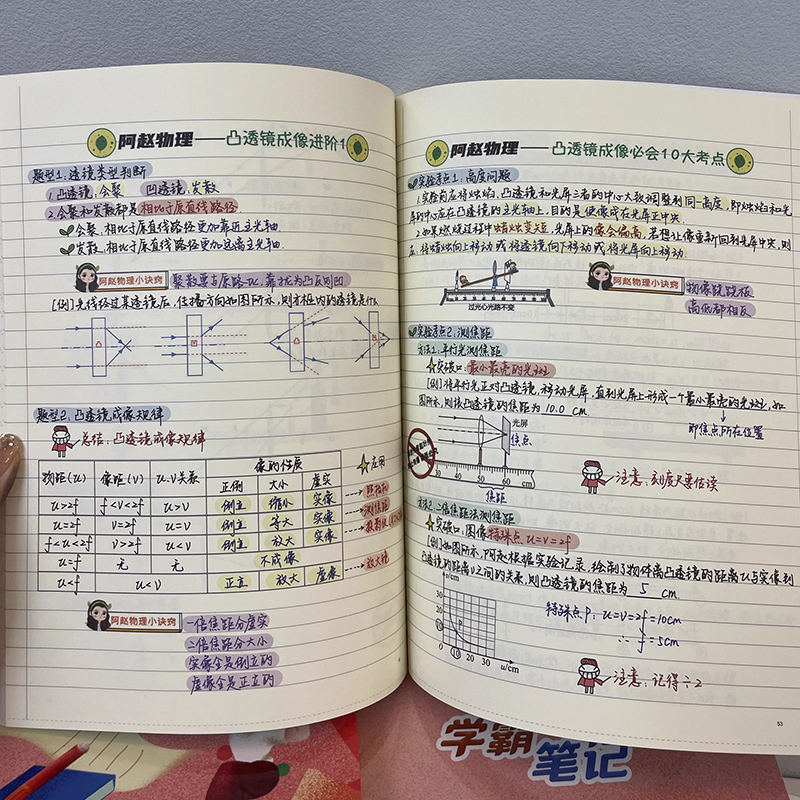 阿赵物理——凸透镜成像进阶1
题型1.透镜类型判断
1.凸透镜,会聚 凹透镜,发散
2.会聚和发散都是相比于原直线路径
会聚,相比于原直线路径更加靠近主光轴.
发散,相比于原直线路径更加远离主光轴.
阿赵物理小诀窍 聚散要与原路比,靠拢为凸反则凹
[例]光线经过某透镜后,传播方向如图所示,则方框内的透镜是什么
凸 凹 凸 凹
题型2.凸透镜成像规律
总结:凸透镜成像规律
物距(u) 像距(v) u.v关系 像的性质 应用
正倒 大小 虚实
u>2f f<v<2f u>v 倒立 缩小 实像 照相机
u=2f v=2f u=v 倒立 等大 实像 测焦距
f<u<2f v>2f u<v 倒立 放大 实像
u=f 无 无 不成像
u<f u<v 正立 放大 虚像 放大镜
阿赵物理小诀窍 一倍焦距分虚实
二倍焦距分大小
实像全是倒立的
虚像全是正立的
阿赵物理——凸透镜成像必会10大考点
实验考点1,高度问题
1.实验前应将烛焰、凸透镜和光屏三者的中心大致调整到同一高度,即烛焰和光
屏的中心应在凸透镜的主光轴上,目的是使像成在光屏正中央
2.如果燃烧过程中蜡烛变短,光屏上的像会偏高,若想让像重新回到光屏中央,则
应将蜡烛向上移动或将透镜向下移动或将光屏向上移动.
过光心光路不变
阿赵物理小诀窍 物像跷跷板
高低都相反
实验考点2,测焦距
方法1,平行光测焦距
突破口:最小最亮的光斑
[例]将平行光正对凸透镜,移动光屏,直到光屏上形成一个最小最亮的光斑,如
图所示,则该凸透镜的焦距为 10.0 cm.
即焦点所在位置
光屏
焦点
30 40 50 60 cm
焦距
注意,刻度尺要估读
方法2,二倍焦距法测焦距
突破口:图像特殊点u=v=2f
[例]如图所示,阿赵根据实验记录,绘制了物体离凸透镜的距离u与实像到
凸透镜的距离v之间的关系,则凸透镜的焦距为 5 cm.
v/cm
40
30
20
10
P
0 10 20 30 u/cm
特殊点P:u=v=2f=10cm
∴f=5cm
注意:记得÷2
53
学霸
笔记